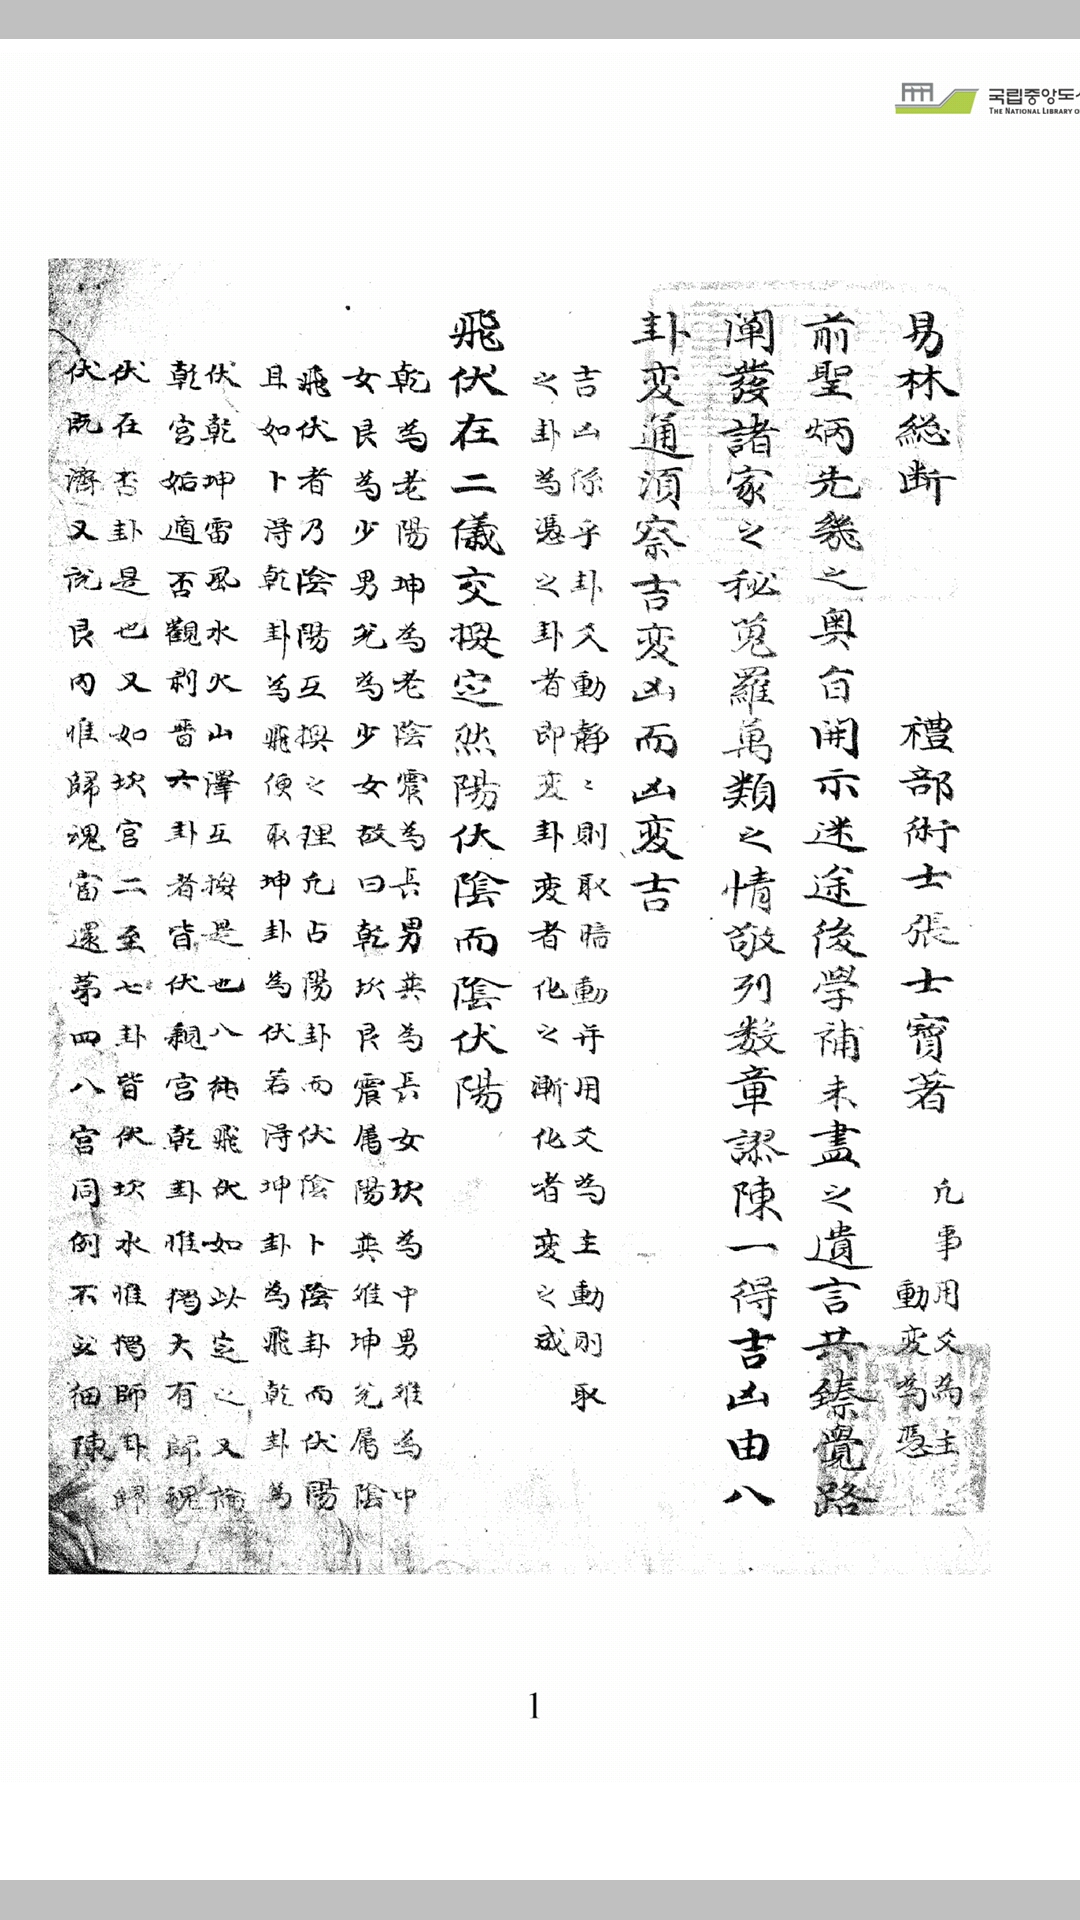 국립중앙도서
THE NATIONAL LIBRARY O
易林総断 禮部術士張士寶著 凡事用爻為主
動変為憑
前聖炳先幾之奥旨開示迷途後學補未盡之遺言共臻覺路
闡發諸家之秘蒐羅萬類之情敬列数章謬陳一得吉凶由八
卦変通須察吉変凶而凶変吉
吉凶係乎卦爻動静〻則取暗動并用爻為主動則取
之卦為憑之卦者即変卦変者化之漸化者変之成
飛伏在二儀交換定然陽伏陰而陰伏陽
乾為老陽坤為老陰震為長男巽為長女坎為中男離為中
女艮為少男兌為少女故曰乾坎艮震属陽巽離坤兌属陰
飛伏者乃陰陽互換之理凡占陽卦而伏陰卜陰卦而伏陽
且如卜淂乾卦為飛便取坤卦為伏若淂坤卦為飛乾卦為
伏乾坤雷風水火山澤互換是也八純飛伏如以定之又論
乾宮姤遁否觀剥晋六卦者皆伏親宮乾卦惟獨大有歸魂
伏在否卦是也又如坎宮二至七卦皆伏坎水惟獨師卦歸
伏既濟又說艮内惟歸魂當還第四八宮同例不必細陳
1